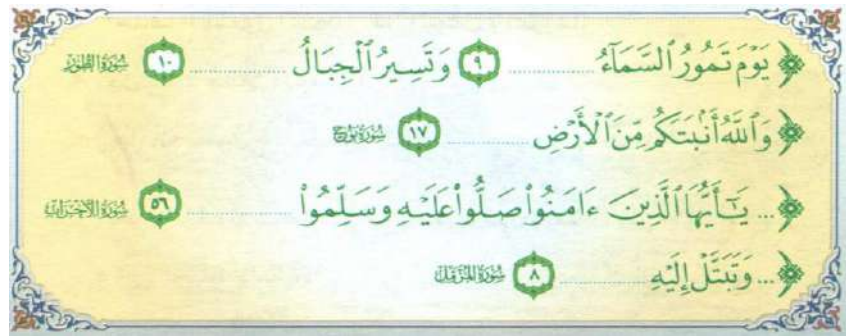 يَوْمَ تَمُورُ ٱلسَّمَآءُ .............. ٩ وَتَسِيرُ ٱلْجِبَالُ .............. ١٠ سُورَةُ الطُّورِ
وَٱللَّهُ أَنۢبَتَكُم مِّنَ ٱلْأَرْضِ .............. ١٧ سُورَةُ نُوحٍ
... يَـٰٓأَيُّهَا ٱلَّذِينَ ءَامَنُوا۟ صَلُّوا۟ عَلَيْهِ وَسَلِّمُوا۟ .............. ٥٦ سُورَةُ الأَحْزَابِ
... وَتَبَتَّلْ إِلَيْهِ .............. ٨ سُورَةُ المُزَّمِّلِ